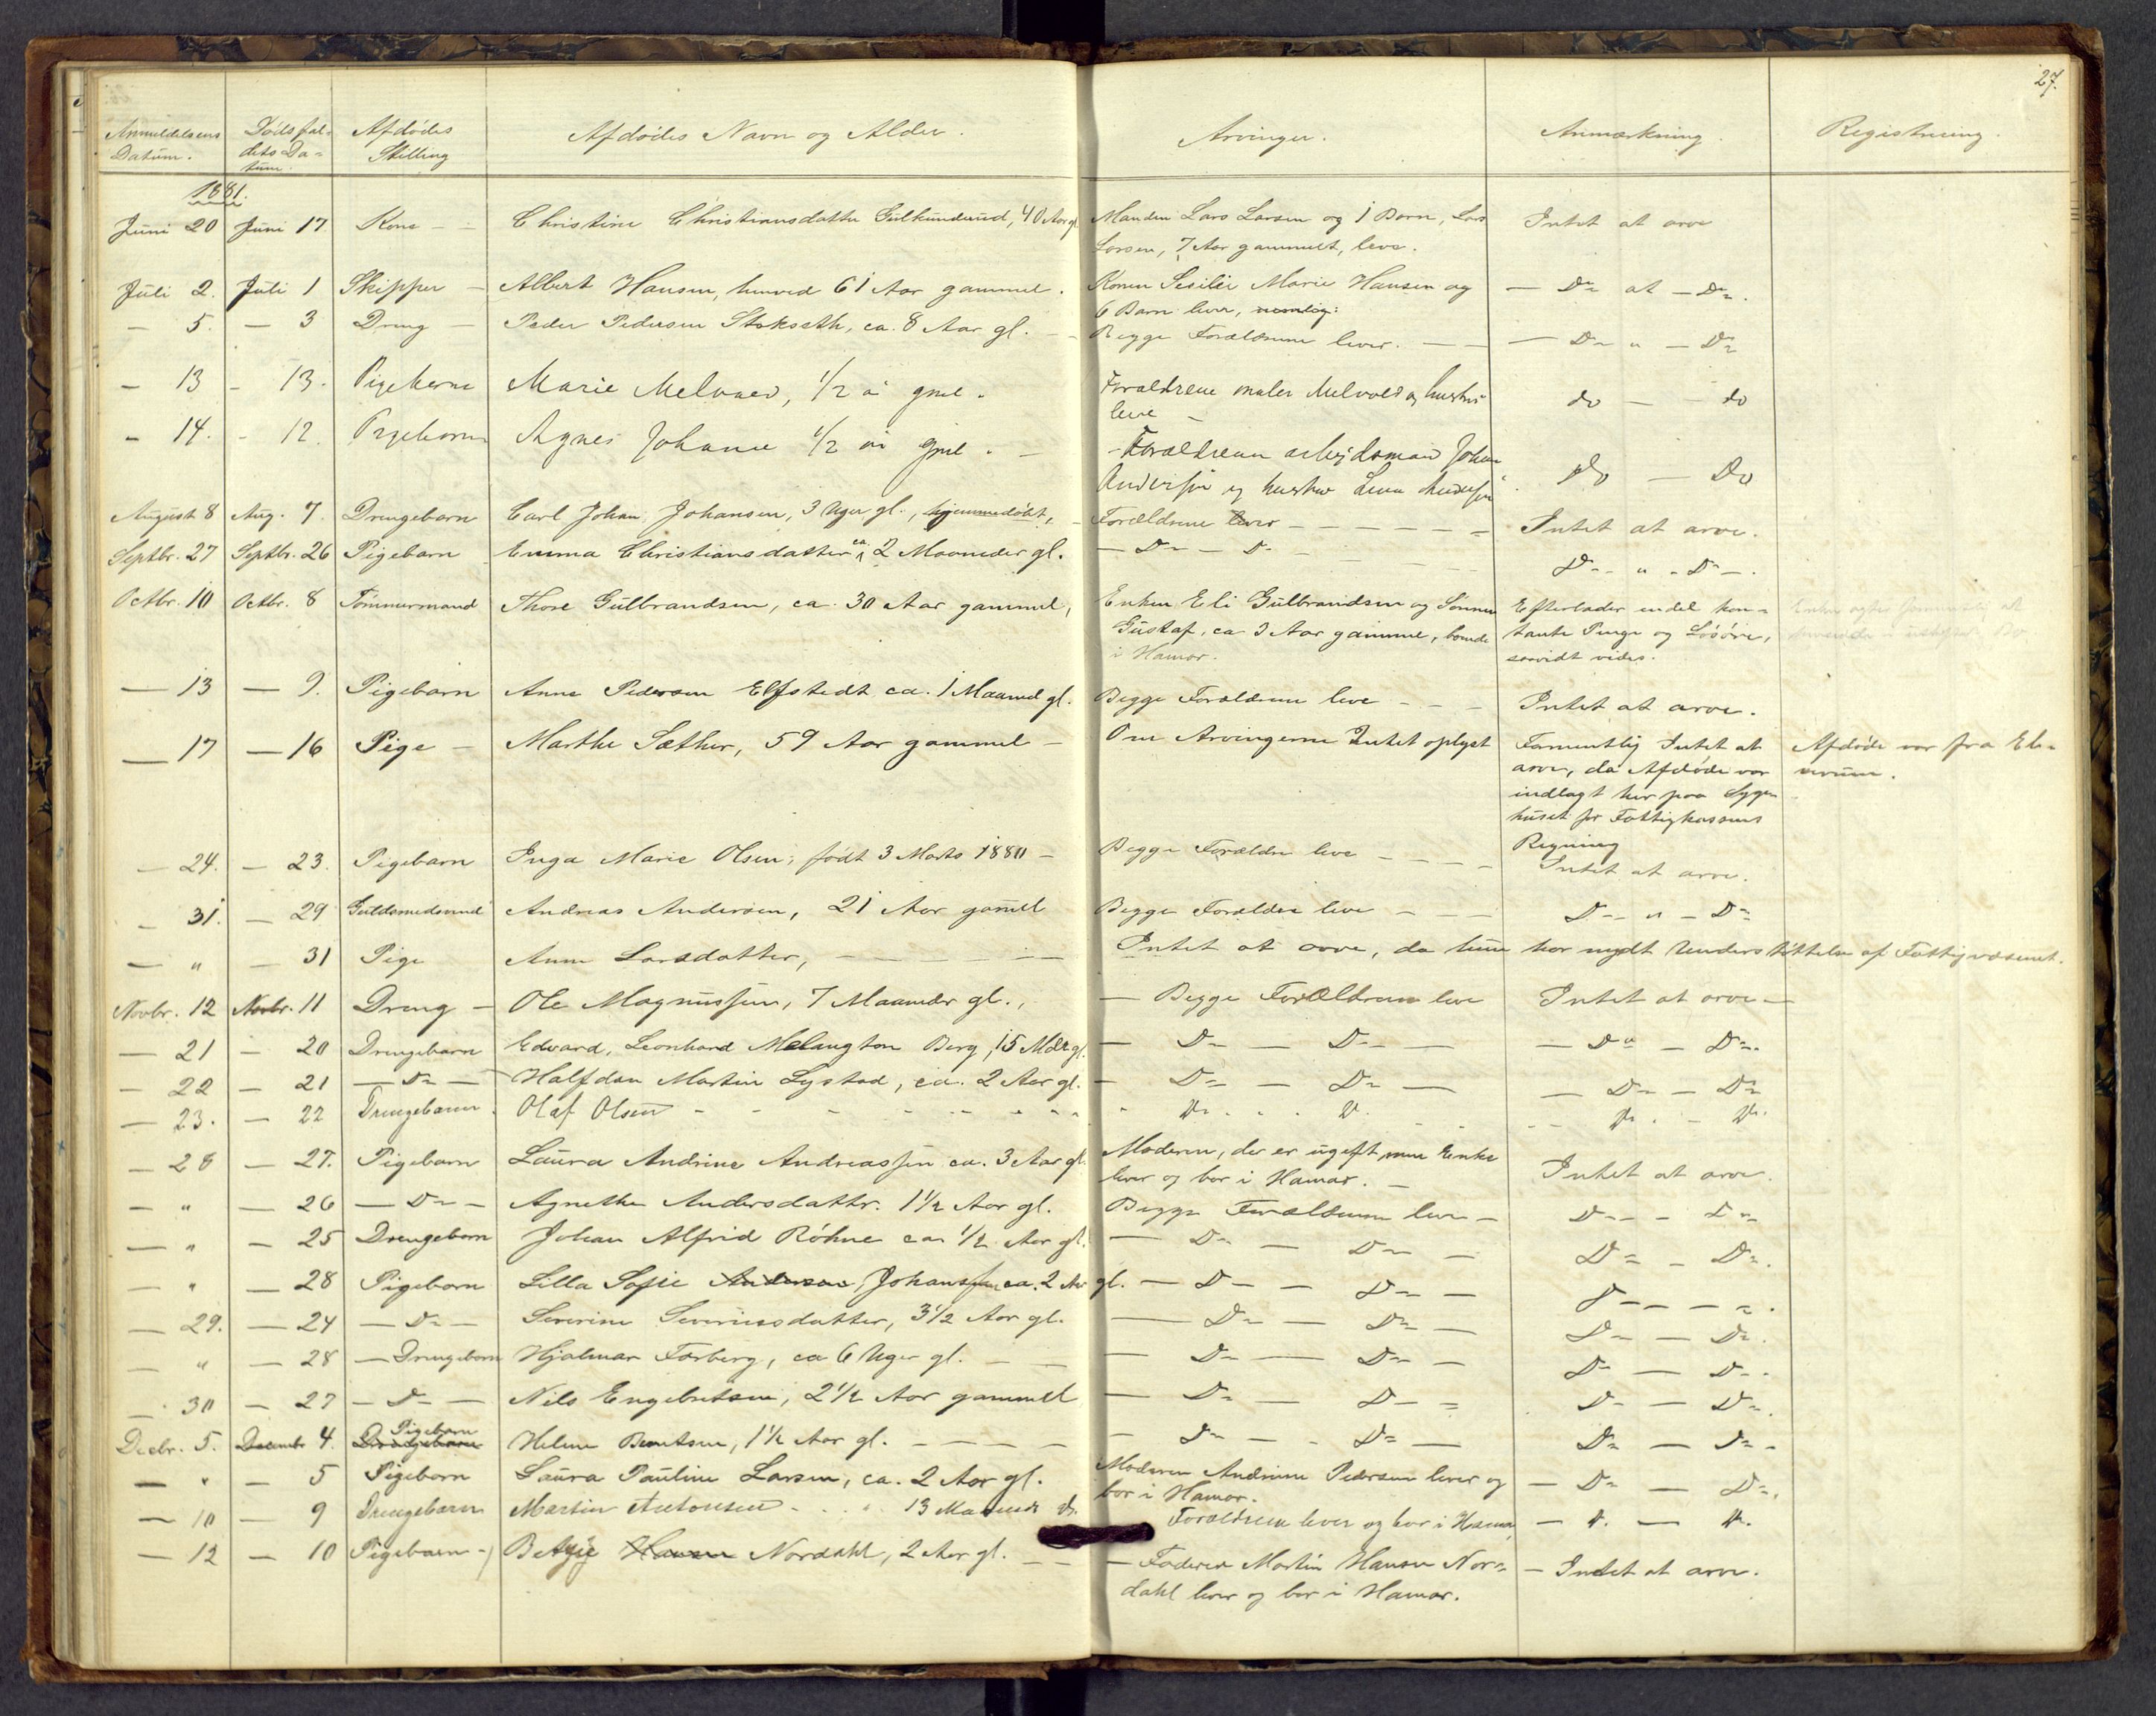 27.
Anmeldelsens Datum. Dödsfaldets Datum. Afdödes Stilling Afdödes Navn og Alder. Arvinger. Anmærkning. Registrering.
1881.
Juni 20 Juni 17 Kone - Christine Christiansdatter 40 Aar gl. Manden Lars Larsen og 1 Barn, Lars Intet at arve
Larsen, 7 Aar gammelt, leve.
Juli 2. Juli 1 Skipper - Albert Hansen, henved 61 Aar gammel. Konen Sesilie Marie Hansen og — Do at — Do.
6 Barn lever, nemlig:
— 5. — 3 Dreng — Peder Pedersen Stokseth, ca. 8 Aar gl. — Begge Forældrene lever. — — — Do " — Do
— 13 — 13. Pigebarn Marie Melvold, 1/2 år gml. Forældrene maler Melvold og hustru do — do
leve —
— 14. — 12. Pigebarn Agnes Johanne 1/2 år gml. — Forældrene arbejdsmand Johan Do — Do
Andersen og hustru Lina Andersen
August 8 Aug. 7. Drengebarn Carl Johan Johansen, 3 Uger gl., hjemmedöbt, — Forældrene lever — — — Intet at arve.
Septbr. 27 Septbr. 26 Pigebarn Emma Christiansdatter ca 2 Maaneder gl. — Do — Do — Do " — Do —.
Octbr. 10 Octbr. 8 Tömmermand Thore Gulbrandsen, ca. 30 Aar gammel, Enken Eli Gulbrandsen og Sönnen Efterlader endel kon-
Gustaf, ca 3 Aar gammel, boende tante Penge og Lösöre,
i Hamar. saavidt vides.
— 13 — 9. Pigebarn Anna Pedersen Elfstedt ca. 1 Maaned gl. Begge Forældrene leve — — Intet at arve.
— 17 — 16 Pige — Marthe Sæther, 59 Aar gammel — Om Arvingerne Intet oplyst Formentlig Intet at Afdöde var fra Elv-
arve, da Afdöde var erum.
indlagt her paa Syge-
huset for Fattigkassens
Regning
— 24. — 23. Pigebarn Inga Marie Olsen, födt 3 Marts 1880 — Begge Forældre leve — — — Intet at arve.
— 31. — 29 Guldsmedsvend Andreas Andersen, 21 Aar gammel Begge Forældre leve — — Do " — Do
— " — 31 Pige Anne Larsdatter, — — — Intet at arve, da hun har nydt Understöttelse af Fattigvæsenet.
Novbr. 12 Novbr. 11 Dreng — Ole Magnussen, 7 Maaneder gl., — Begge Forældrene leve Intet at arve —
— 21 — 20 Drengebarn Edvard, Leonhard Melangton Berg, 15 Mdr gl. — Do — Do — — Do — Do.
— 22 — 21 — Do — Halfdan Martin Lystad, ca. 2 Aar gl. — Do — Do — — Do — Do
— 23. — 22 Drengebarn. Olaf Olsen - - - - Do. . . Do. - - Do. - Do.
— 28 — 27. Pigebarn Laura Andrine Andreassen ca. 3 Aar gl. Moderen, der er ugift, men Enke Intet at arve.
lever og bor i Hamar. —
— " — 26 — Do — Agnethe Andersdatter. 1 1/2 Aar gl. Begge Forældrene leve — Do — — Do
— " — 25 Drengebarn Johan Alfrid Röhne ca 1/2 Aar gl. — Do — Do — Do — Do.
— " — 28 Pigebarn Lilla Sofie Andersen Johanssen ca. 2 Aar gl. — Do — Do — Do — — .
— 29. — 24 — Do — Severine Severinsdatter, 3 1/2 Aar gl. — Do — Do — Do — Do.
— " — 28 — Drengebarn Hjalmar Forberg, ca 6 Uger gl. — — — Do — Do — Do — Do.
— 30 — 27 — Do — Nils Engebretsen, 2 1/2 Aar gammel — Do — Do — Do — Do.
Decbr. 5. December 4. Drengebarn Pigebarn Helene Berntsen, 1 1/2 Aar gl. — — — — Do — Do — Do — Do.
— " — 5 Pigebarn Laura Pauline Larsen, ca. 2 Aar gl. Moderen Andrine Pedersen lever og — Do — Do.
bor i Hamar.
— 10 — 9 Drengebarn Martin Antonsen . . . 13 Maaneder Forældrene lever og bor i Hamar — Do. — Do.
— 12 — 10 Pigebarn — Betzie Hansen Nordahl, 2 Aar gl. — — — Faderen Martin Hansen Nor- — Intet at arve.
dahl lever og bor i Hamar.